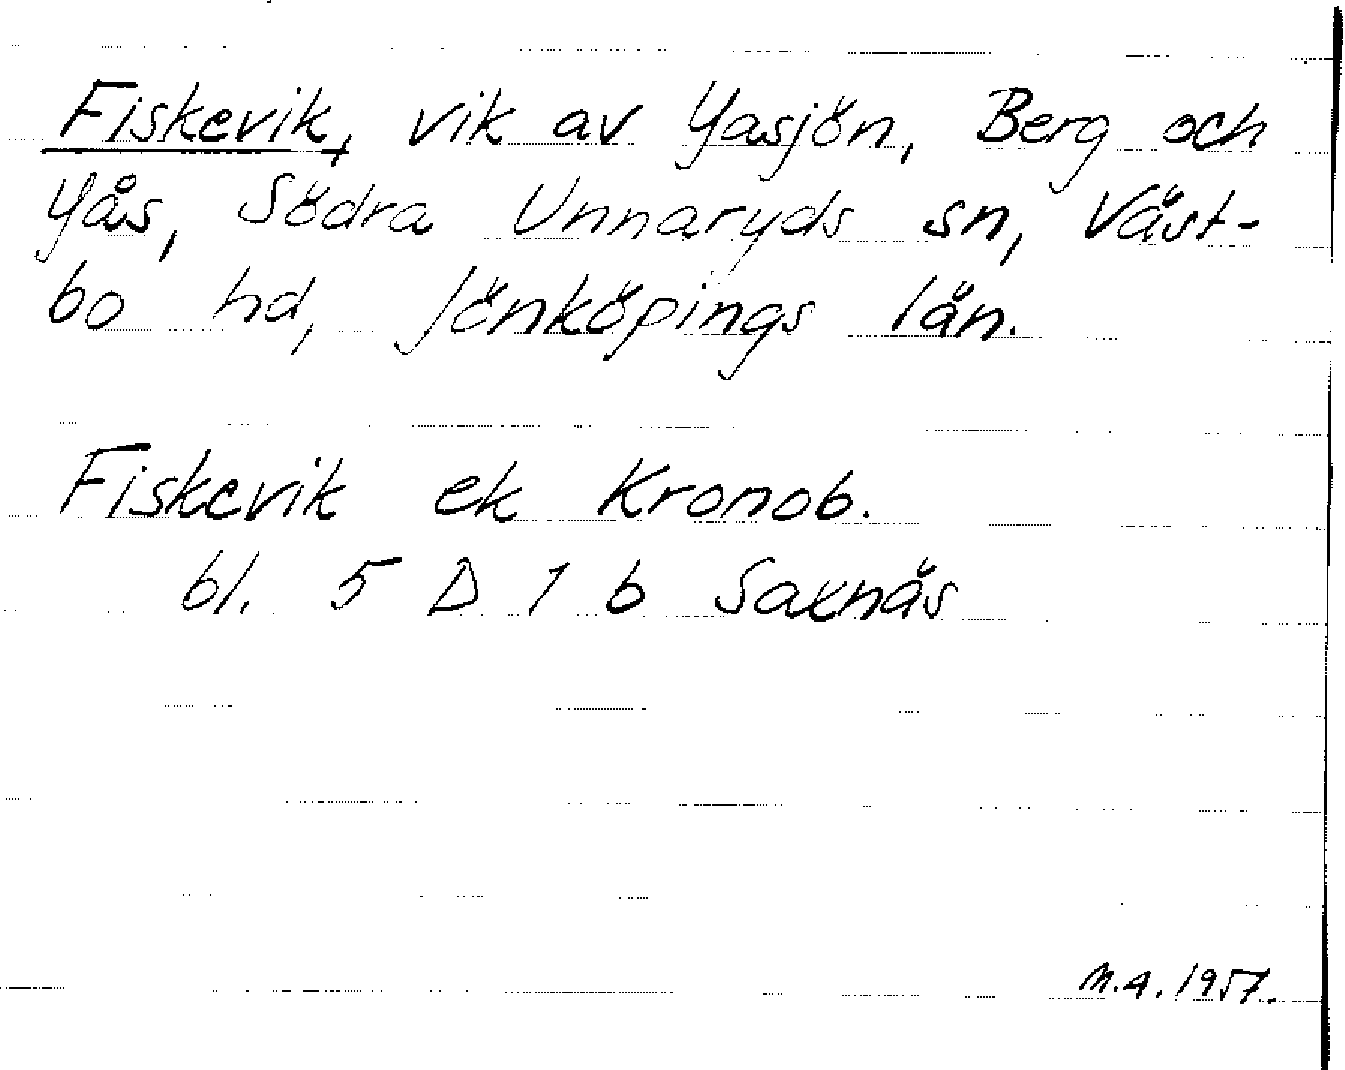 Fiskevik, vik av Yasjön, Berg och
Yås, Södra Unnaryds sn, Väst-
bo hd, Jönköpings län.
Fiskevik ek Kronob.
bl. 5 D 1 b Saxnäs
M.A. 1957.